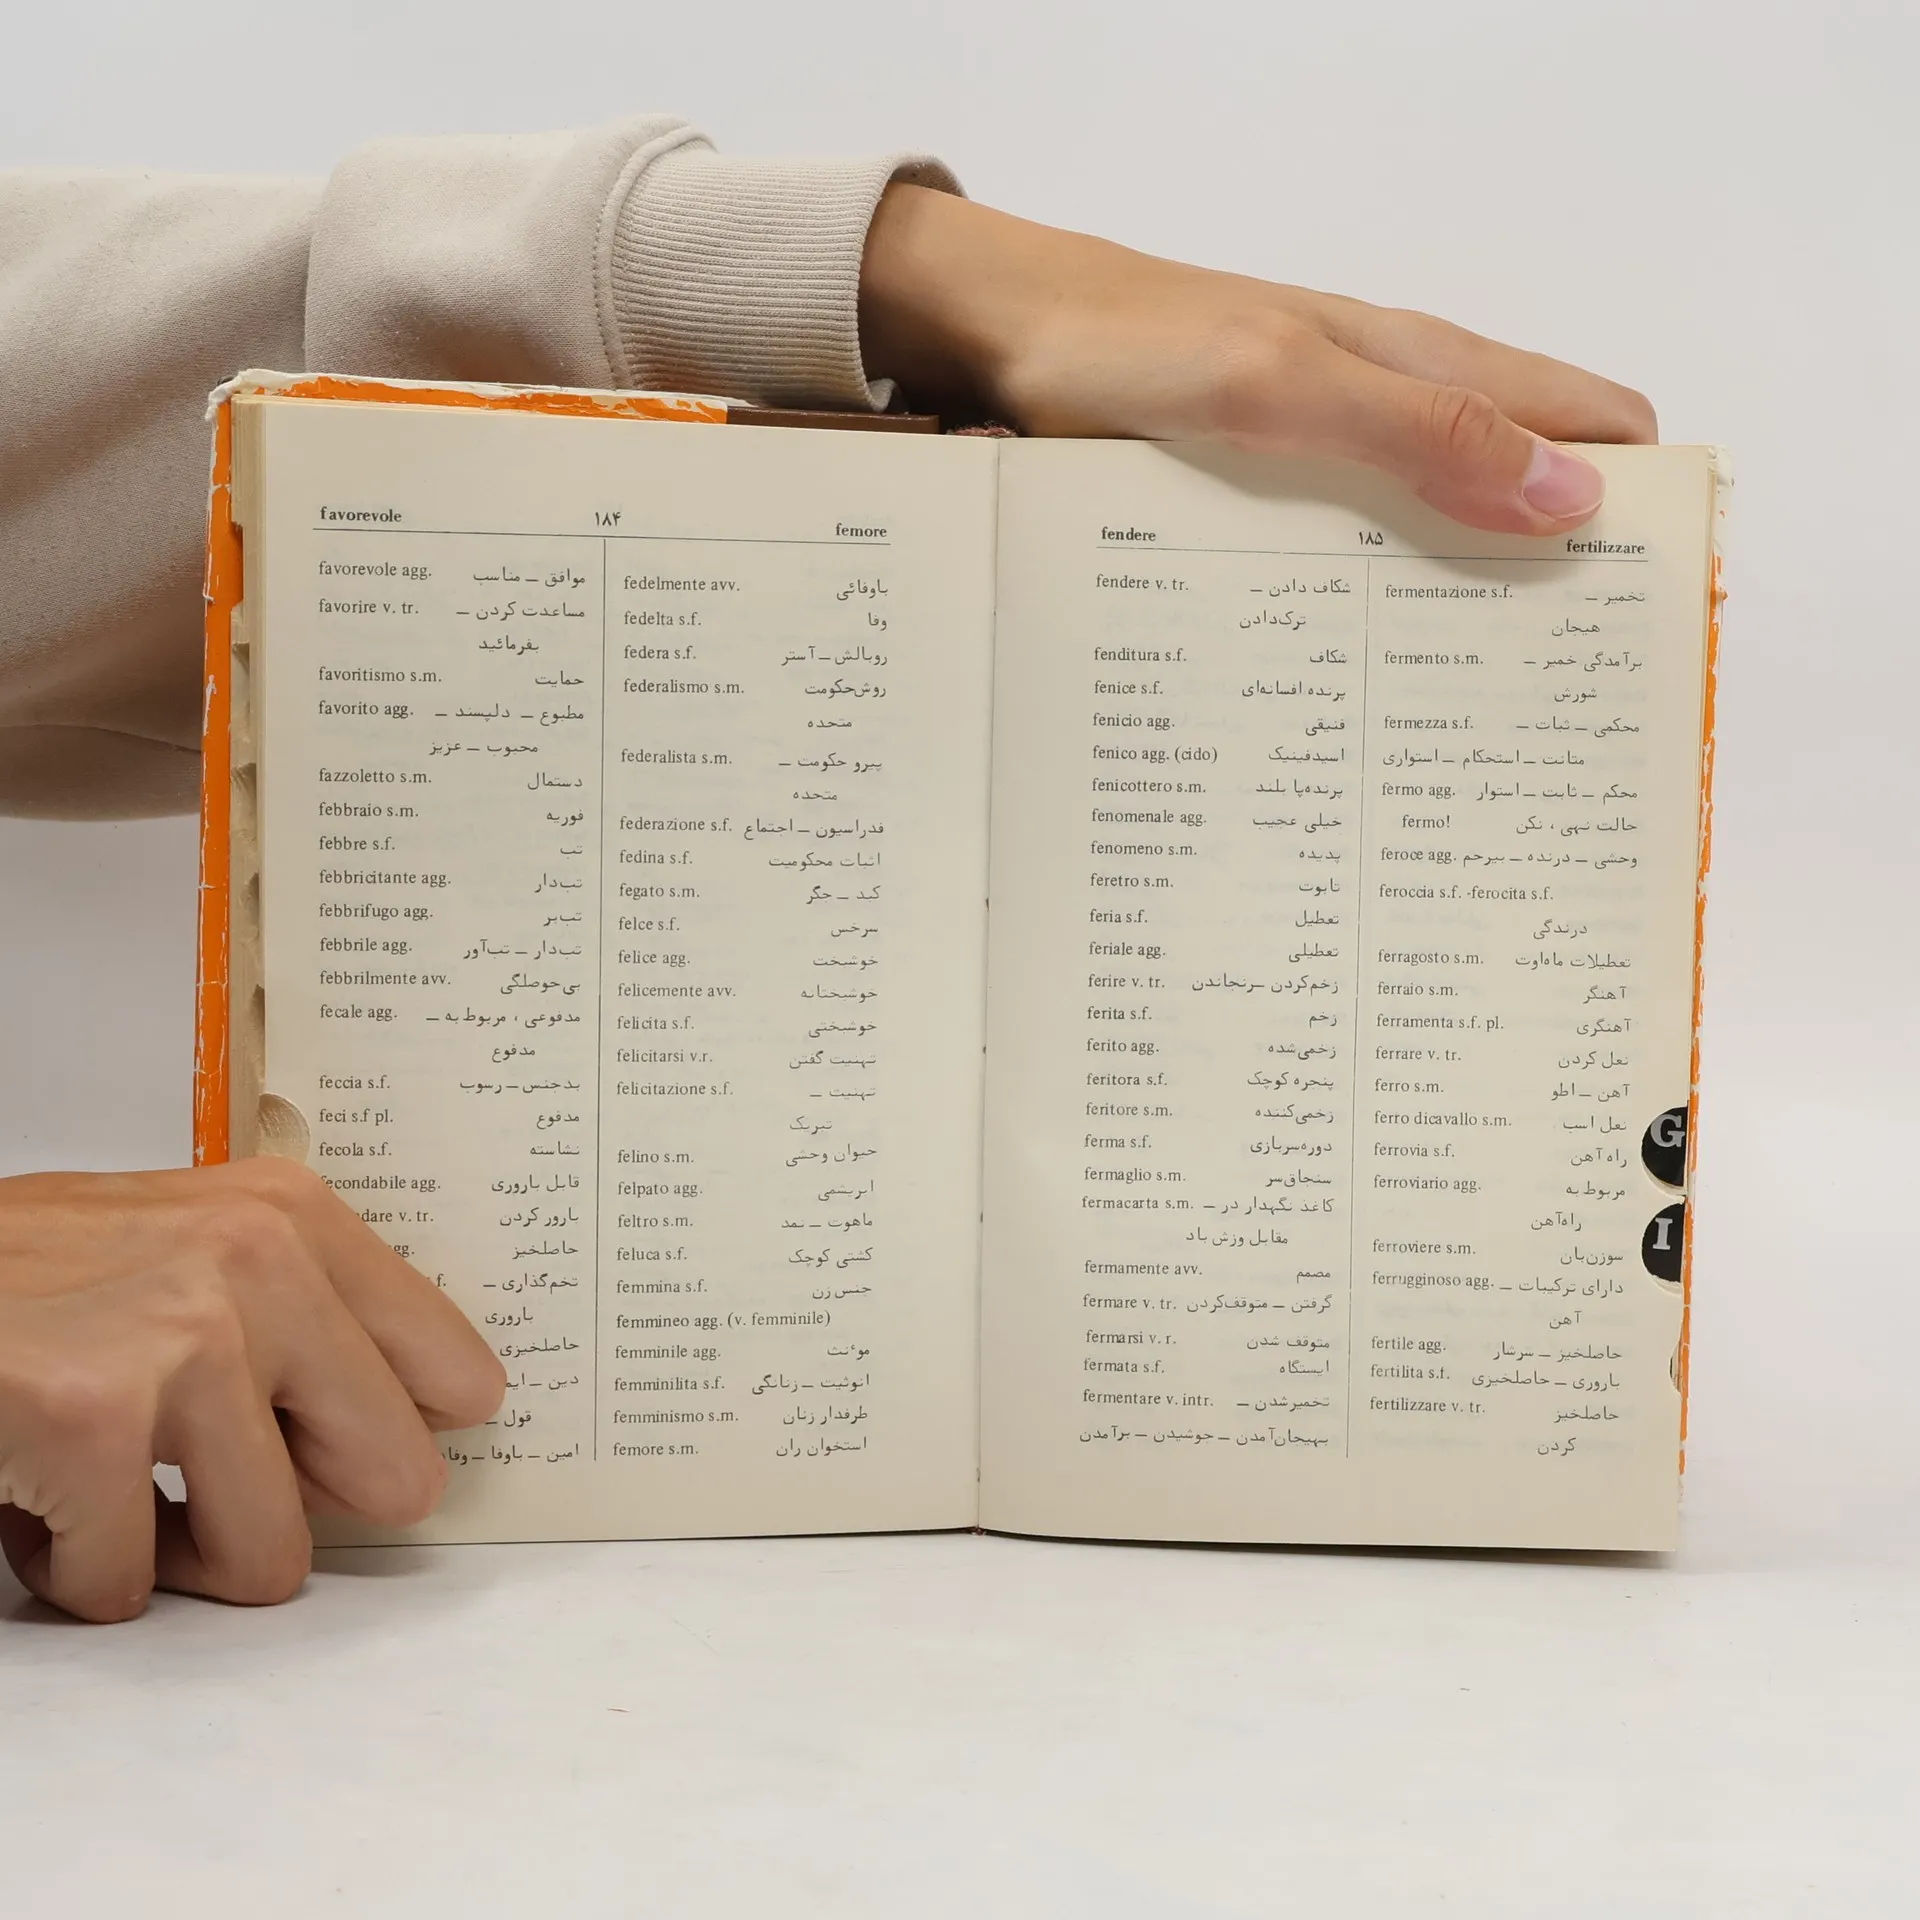 favorevole ۱۸۴ femore
favorevole agg. موافق ــ مناسب
favorire v. tr. مساعدت کردن ــ
بفرمائید
favoritismo s.m. حمایت
favorito agg. مطبوع ــ دلپسند ــ
محبوب ــ عزیز
fazzoletto s.m. دستمال
febbraio s.m. فوریه
febbre s.f. تب
febbricitante agg. تب‌دار
febbrifugo agg. تب‌بر
febbrile agg. تب‌دار ــ تب‌آور
febbrilmente avv. بی‌حوصلگی
fecale agg. مدفوعی ، مربوط به ــ
مدفوع
feccia s.f. بدجنس ــ رسوب
feci s.f pl. مدفوع
fecola s.f. نشاسته
fecondabile agg. قابل باروری
dare v. tr. بارور کردن
agg. حاصلخیز
f. تخم‌گذاری ــ
باروری
حاصلخیزی
دین ــ
قول ــ
امین ــ باوفا ــ
fedelmente avv. باوفائی
fedelta s.f. وفا
federa s.f. روبالش ــ آستر
federalismo s.m. روش‌حکومت
متحده
federalista s.m. پیرو حکومت ــ
متحده
federazione s.f. فدراسیون ــ اجتماع
fedina s.f. اثبات محکومیت
fegato s.m. کبد ــ جگر
felce s.f. سرخس
felice agg. خوشبخت
felicemente avv. خوشبختانه
felicita s.f. خوشبختی
felicitarsi v.r. تهنیت گفتن
felicitazione s.f. تهنیت ــ
تبریک
felino s.m. حیوان وحشی
felpato agg. ابریشمی
feltro s.m. ماهوت ــ نمد
feluca s.f. کشتی کوچک
femmina s.f. جنس زن
femmineo agg. (v. femminile)
femminile agg. موءنث
femminilita s.f. انوثیت ــ زنانگی
femminismo s.m. طرفدار زنان
femore s.m. استخوان ران
fendere ۱۸۵ fertilizzare
fendere v. tr. شکاف دادن ــ
ترک‌دادن
fenditura s.f. شکاف
fenice s.f. پرنده افسانه‌ای
fenicio agg. فنیقی
fenico agg. (cido) اسیدفینیک
fenicottero s.m. پرنده‌پا بلند
fenomenale agg. خیلی عجیب
fenomeno s.m. پدیده
feretro s.m. تابوت
feria s.f. تعطیل
feriale agg. تعطیلی
ferire v. tr. زخم‌کردن ــ رنجاندن
ferita s.f. زخم
ferito agg. زخمی‌شده
feritora s.f. پنجره کوچک
feritore s.m. زخمی‌کننده
ferma s.f. دوره‌سربازی
fermaglio s.m. سنجاق‌سر
fermacarta s.m. کاغذ نگهدار در ــ
مقابل وزش باد
fermamente avv. مصمم
fermare v. tr. گرفتن ــ متوقف‌کردن
fermarsi v. r. متوقف شدن
fermata s.f. ایستگاه
fermentare v. intr. تخمیرشدن ــ
بهیجان‌آمدن ــ جوشیدن ــ برآمدن
fermentazione s.f. تخمیر ــ
هیجان
fermento s.m. برآمدگی خمیر ــ
شورش
fermezza s.f. محکمی ــ ثبات ــ
متانت ــ استحکام ــ استواری
fermo agg. محکم ــ ثابت ــ استوار
fermo! حالت نهی ، نکن
feroce agg. وحشی ــ درنده ــ بیرحم
feroccia s.f. -ferocita s.f.
درندگی
ferragosto s.m. تعطیلات ماه‌اوت
ferraio s.m. آهنگر
ferramenta s.f. pl. آهنگری
ferrare v. tr. نعل کردن
ferro s.m. آهن ــ اطو
ferro dicavallo s.m. نعل اسب
ferrovia s.f. راه آهن
ferroviario agg. مربوط به
راه‌آهن
ferroviere s.m. سوزن‌بان
ferrugginoso agg. دارای ترکیبات ــ
آهن
fertile agg. حاصلخیز ــ سرشار
fertilita s.f. باروری ــ حاصلخیزی
fertilizzare v. tr. حاصلخیز
کردن
G
I